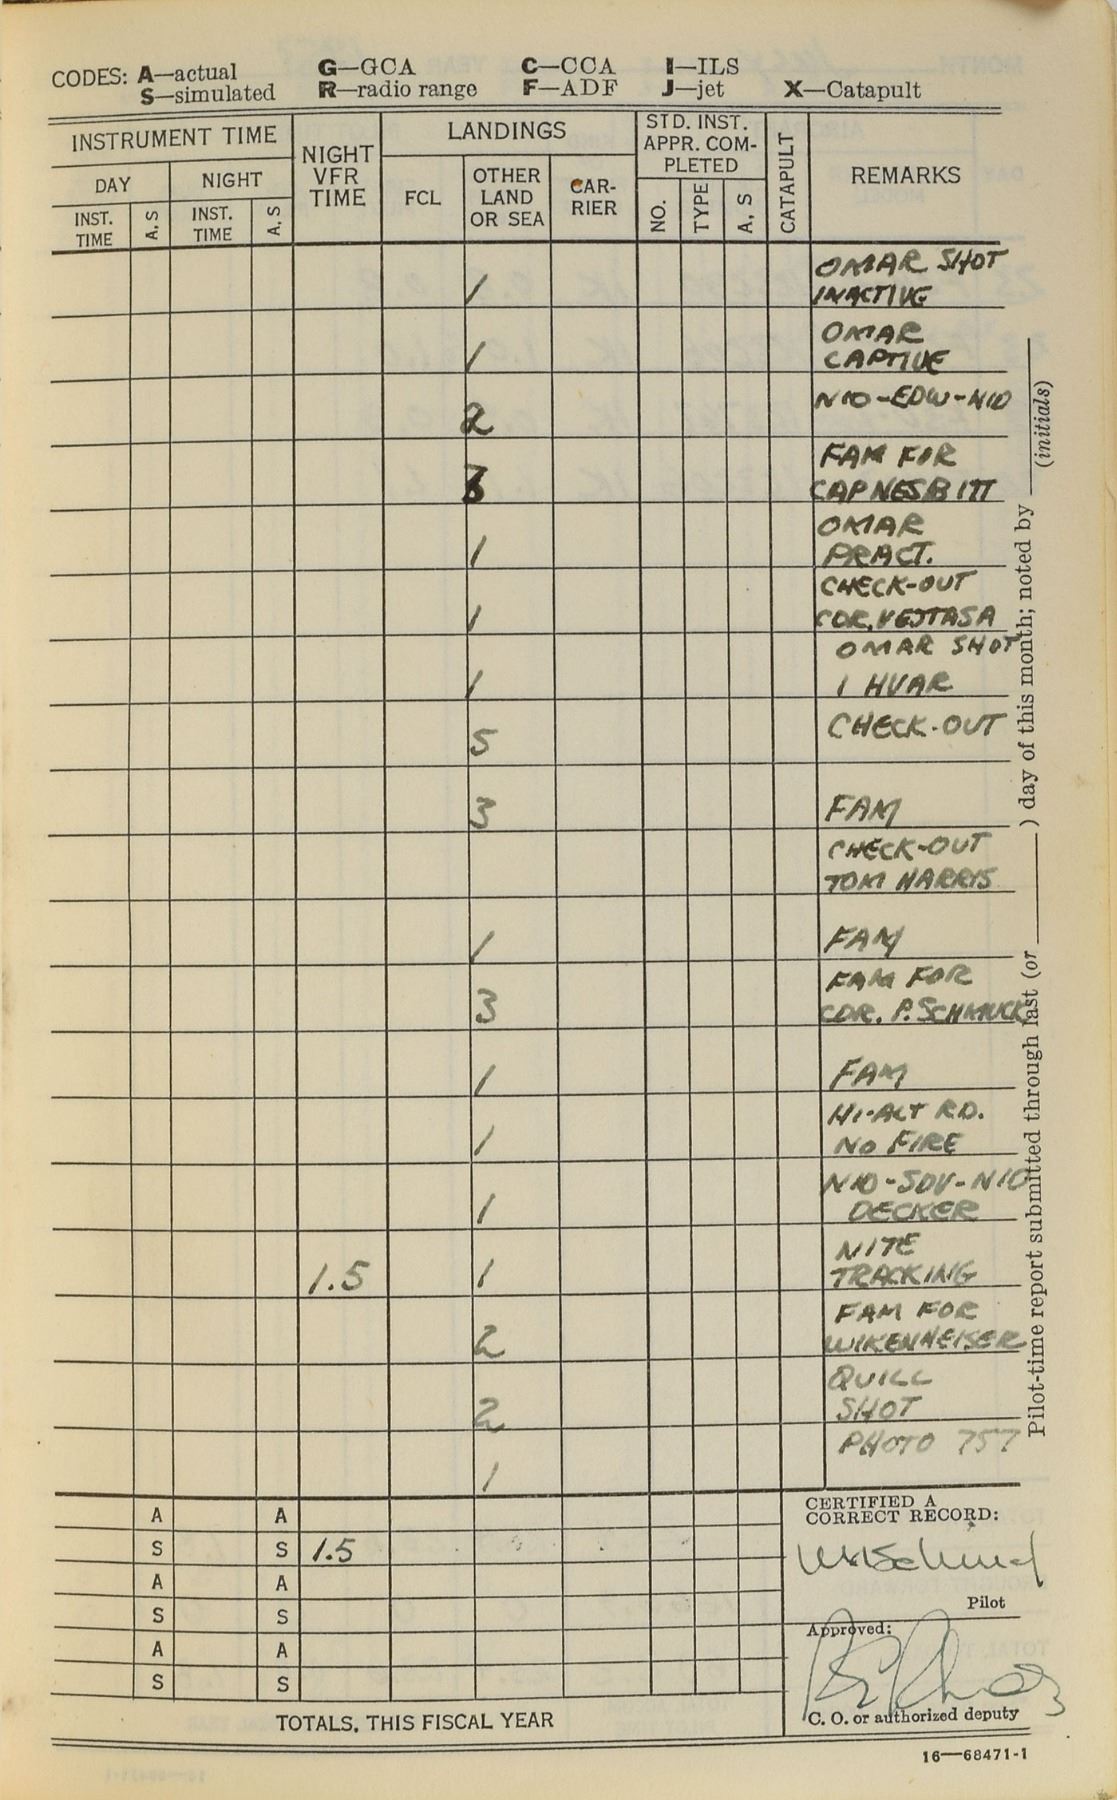 CODES: A—actual G—GCA C—CCA I—ILS
S—simulated R—radio range F—ADF J—jet X—Catapult
INSTRUMENT TIME
DAY NIGHT
INST. TIME A, S INST. TIME A, S
NIGHT VFR TIME
LANDINGS
FCL OTHER LAND OR SEA CAR-RIER
STD. INST. APPR. COM-PLETED
NO. TYPE A, S
CATAPULT
REMARKS
OMAR SHOT
1 INACTIVE
OMAR
1 CAPTIVE
2 N10-EDW-N10
FAM FOR
3 CAP NESBITT
OMAR
1 PRACT.
CHECK-OUT
1 CDR. VEJTASA
OMAR SHOT
1 1 HVAR
5 CHECK-OUT
3 FAM
CHECK-OUT
TOM HARRIS
1 FAM
FAM FOR
3 CDR. P. SCHMUCK
1 FAM
HI-ALT RD.
1 NO FIRE
N10-SDV-N10
1 DECKER
NITE
1.5 1 TRACKING
FAM FOR
2 WIKENHEISER
QUILL
2 SHOT
PHOTO 757
1
A A
S S 1.5
A A
S S
A A
S S
TOTALS, THIS FISCAL YEAR
CERTIFIED A
CORRECT RECORD:
Pilot
Approved:
C. O. or authorized deputy
16—68471-1
Pilot-time report submitted through last (or ) day of this month; noted by (initials)